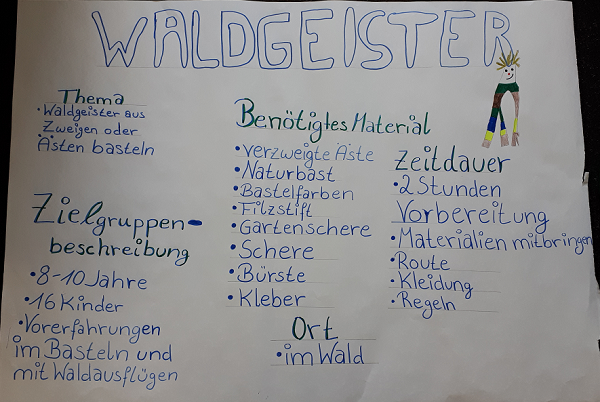 WALDGEISTER
Thema
• Waldgeister aus
Zweigen oder
Ästen basteln
Zielgruppen-
beschreibung
• 8-10 Jahre
• 16 Kinder
• Vorerfahrungen
im Basteln und
mit Waldausflügen
Benötigtes Material
• verzweigte Äste
• Naturbast
• Bastelfarben
• Filzstift
• Gartenschere
• Schere
• Bürste
• Kleber
Ort
• im Wald
Zeitdauer
• 2 Stunden
Vorbereitung
• Materialien mitbringen
• Route
• Kleidung
• Regeln